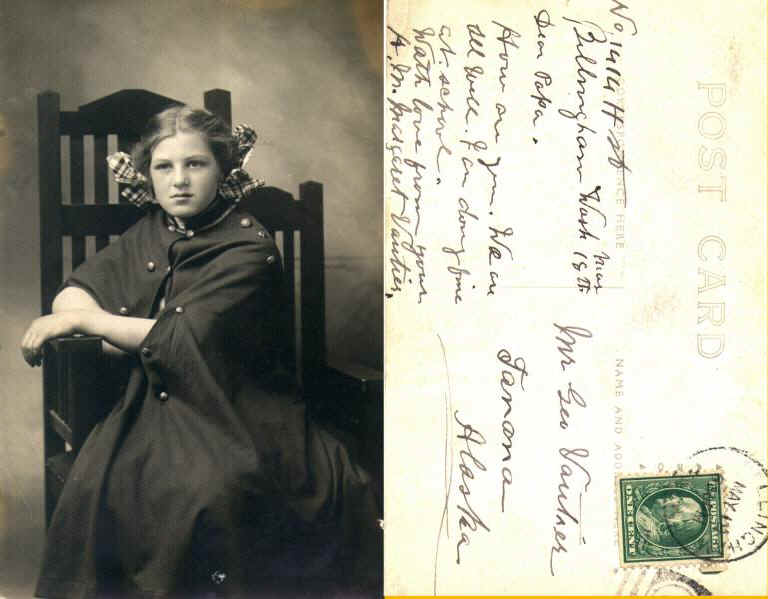 POST CARD
CORRESPONDENCE HERE
NAME AND ADDRESS HERE
No, 1414 H St
Bellingham Wash Mar
18th
Dear Papa.
How are you. We are
all well. I am doing fine
at school.
With love from your
A. M. Margaret Vautier.
Mr Geo Vautier
Tanana
Alaska
U.S. POSTAGE
ONE CENT
MAR